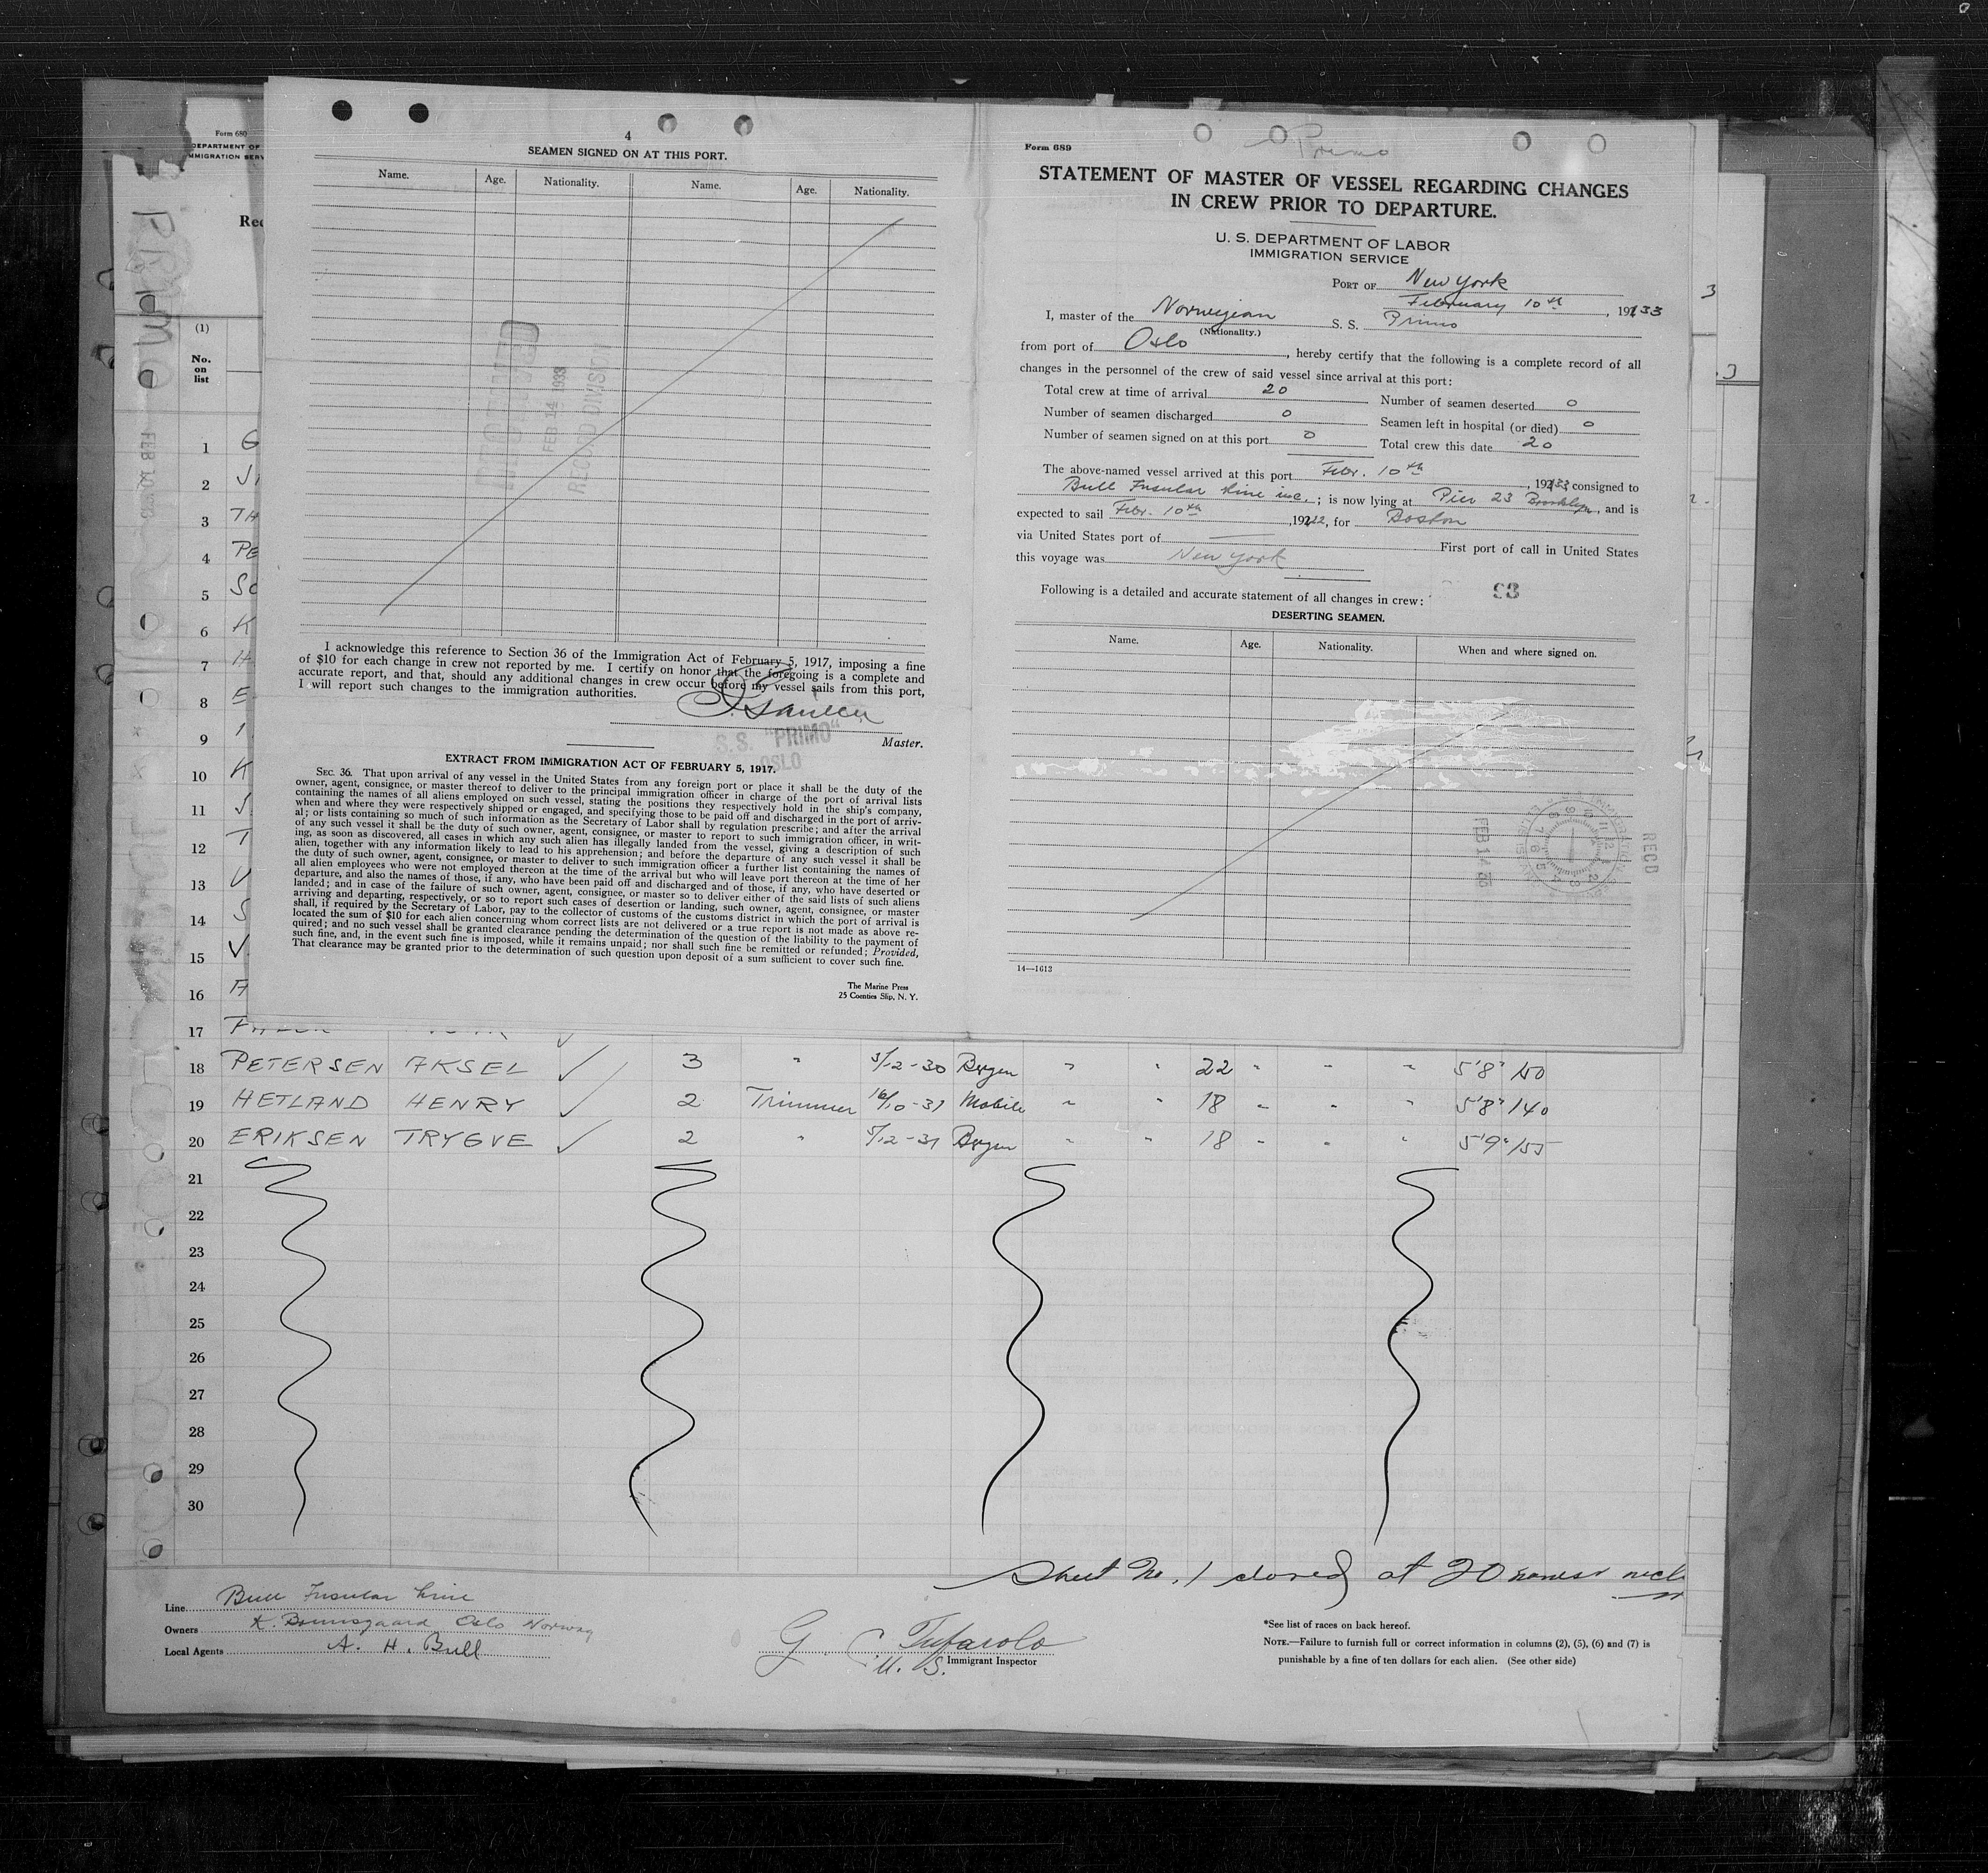 Form 680
DEPARTMENT OF
IMMIGRATION SERV
PRIMO
Rec
(1)
No.
on
list
4
SEAMEN SIGNED ON AT THIS PORT.
Name. Age. Nationality. Name. Age. Nationality.
FEB 14 1933
RECORD DIVISION
I acknowledge this reference to Section 36 of the Immigration Act of February 5, 1917, imposing a fine
of $10 for each change in crew not reported by me. I certify on honor that the foregoing is a complete and
accurate report, and that, should any additional changes in crew occur before my vessel sails from this port,
I will report such changes to the immigration authorities.
S.S. "PRIMO"
OSLO
Master.
EXTRACT FROM IMMIGRATION ACT OF FEBRUARY 5, 1917.
SEC. 36. That upon arrival of any vessel in the United States from any foreign port or place it shall be the duty of the
owner, agent, consignee, or master thereof to deliver to the principal immigration officer in charge of the port of arrival lists
containing the names of all aliens employed on such vessel, stating the positions they respectively hold in the ship's company,
when and where they were respectively shipped or engaged, and specifying those to be paid off and discharged in the port of arriv-
al; or lists containing so much of such information as the Secretary of Labor shall by regulation prescribe; and after the arrival
of any such vessel it shall be the duty of such owner, agent, consignee, or master to report to such immigration officer, in writ-
ing, as soon as discovered, all cases in which any such alien has illegally landed from the vessel, giving a description of such
alien, together with any information likely to lead to his apprehension; and before the departure of any such vessel it shall be
the duty of such owner, agent, consignee, or master to deliver to such immigration officer a further list containing the names of
all alien employees who were not employed thereon at the time of the arrival but who will leave port thereon at the time of her
departure, and also the names of those, if any, who have been paid off and discharged and of those, if any, who have deserted or
landed; and in case of the failure of such owner, agent, consignee, or master so to deliver either of the said lists of such aliens
arriving and departing, respectively, or so to report such cases of desertion or landing, such owner, agent, consignee, or master
shall, if required by the Secretary of Labor, pay to the collector of customs of the customs district in which the port of arrival is
located the sum of $10 for each alien concerning whom correct lists are not delivered or a true report is not made as above re-
quired; and no such vessel shall be granted clearance pending the determination of the question of the liability to the payment of
such fine, and, in the event such fine is imposed, while it remains unpaid; nor shall such fine be remitted or refunded; Provided,
That clearance may be granted prior to the determination of such question upon deposit of a sum sufficient to cover such fine.
The Marine Press
25 Coenties Slip, N. Y.
Form 689
Primo
STATEMENT OF MASTER OF VESSEL REGARDING CHANGES
IN CREW PRIOR TO DEPARTURE.
U. S. DEPARTMENT OF LABOR
IMMIGRATION SERVICE
PORT OF New York
February 10th, 1933
I, master of the Norwegian S. S. Primo
(Nationality.)
from port of Oslo, hereby certify that the following is a complete record of all
changes in the personnel of the crew of said vessel since arrival at this port:
Total crew at time of arrival 20 Number of seamen deserted 0
Number of seamen discharged 0 Seamen left in hospital (or died) 0
Number of seamen signed on at this port 0 Total crew this date 20
The above-named vessel arrived at this port Febr. 10th, 1933 consigned to
Bull Insular Line inc.; is now lying at Pier 23 Brooklyn, and is
expected to sail Febr. 10th, for Boston
via United States port of — First port of call in United States
this voyage was New York
Following is a detailed and accurate statement of all changes in crew:
93
DESERTING SEAMEN.
Name. Age. Nationality. When and where signed on.
REC'D
FEB 14 33
14—1613
1 G
2
3 TH
4 PE
5 SC
6 K
7 H
8 E
9
10 K
11 S
12 T
13
14 S
15 V
16 A
17
18 PETERSEN AKSEL ✓ 3 " 3/12-30 Bergen " " 22 " " " 5'8" 150
19 HETLAND HENRY ✓ 2 Trimmer 16/10-31 Mobile " " 18 " " " 5'8" 140
20 ERIKSEN TRYGVE ✓ 2 " 5/12-31 Bergen " " 18 " " " 5'9" 155
21
22
23
24
25
26
27
28
29
30
Sheet No. 1 closed at 20 names
Line Bull Insular Line
Owners Oslo Norway
Local Agents A. H. Bull
G. C. Tufarolo
U. S. Immigrant Inspector
*See list of races on back hereof.
NOTE.—Failure to furnish full or correct information in columns (2), (5), (6) and (7) is
punishable by a fine of ten dollars for each alien. (See other side)